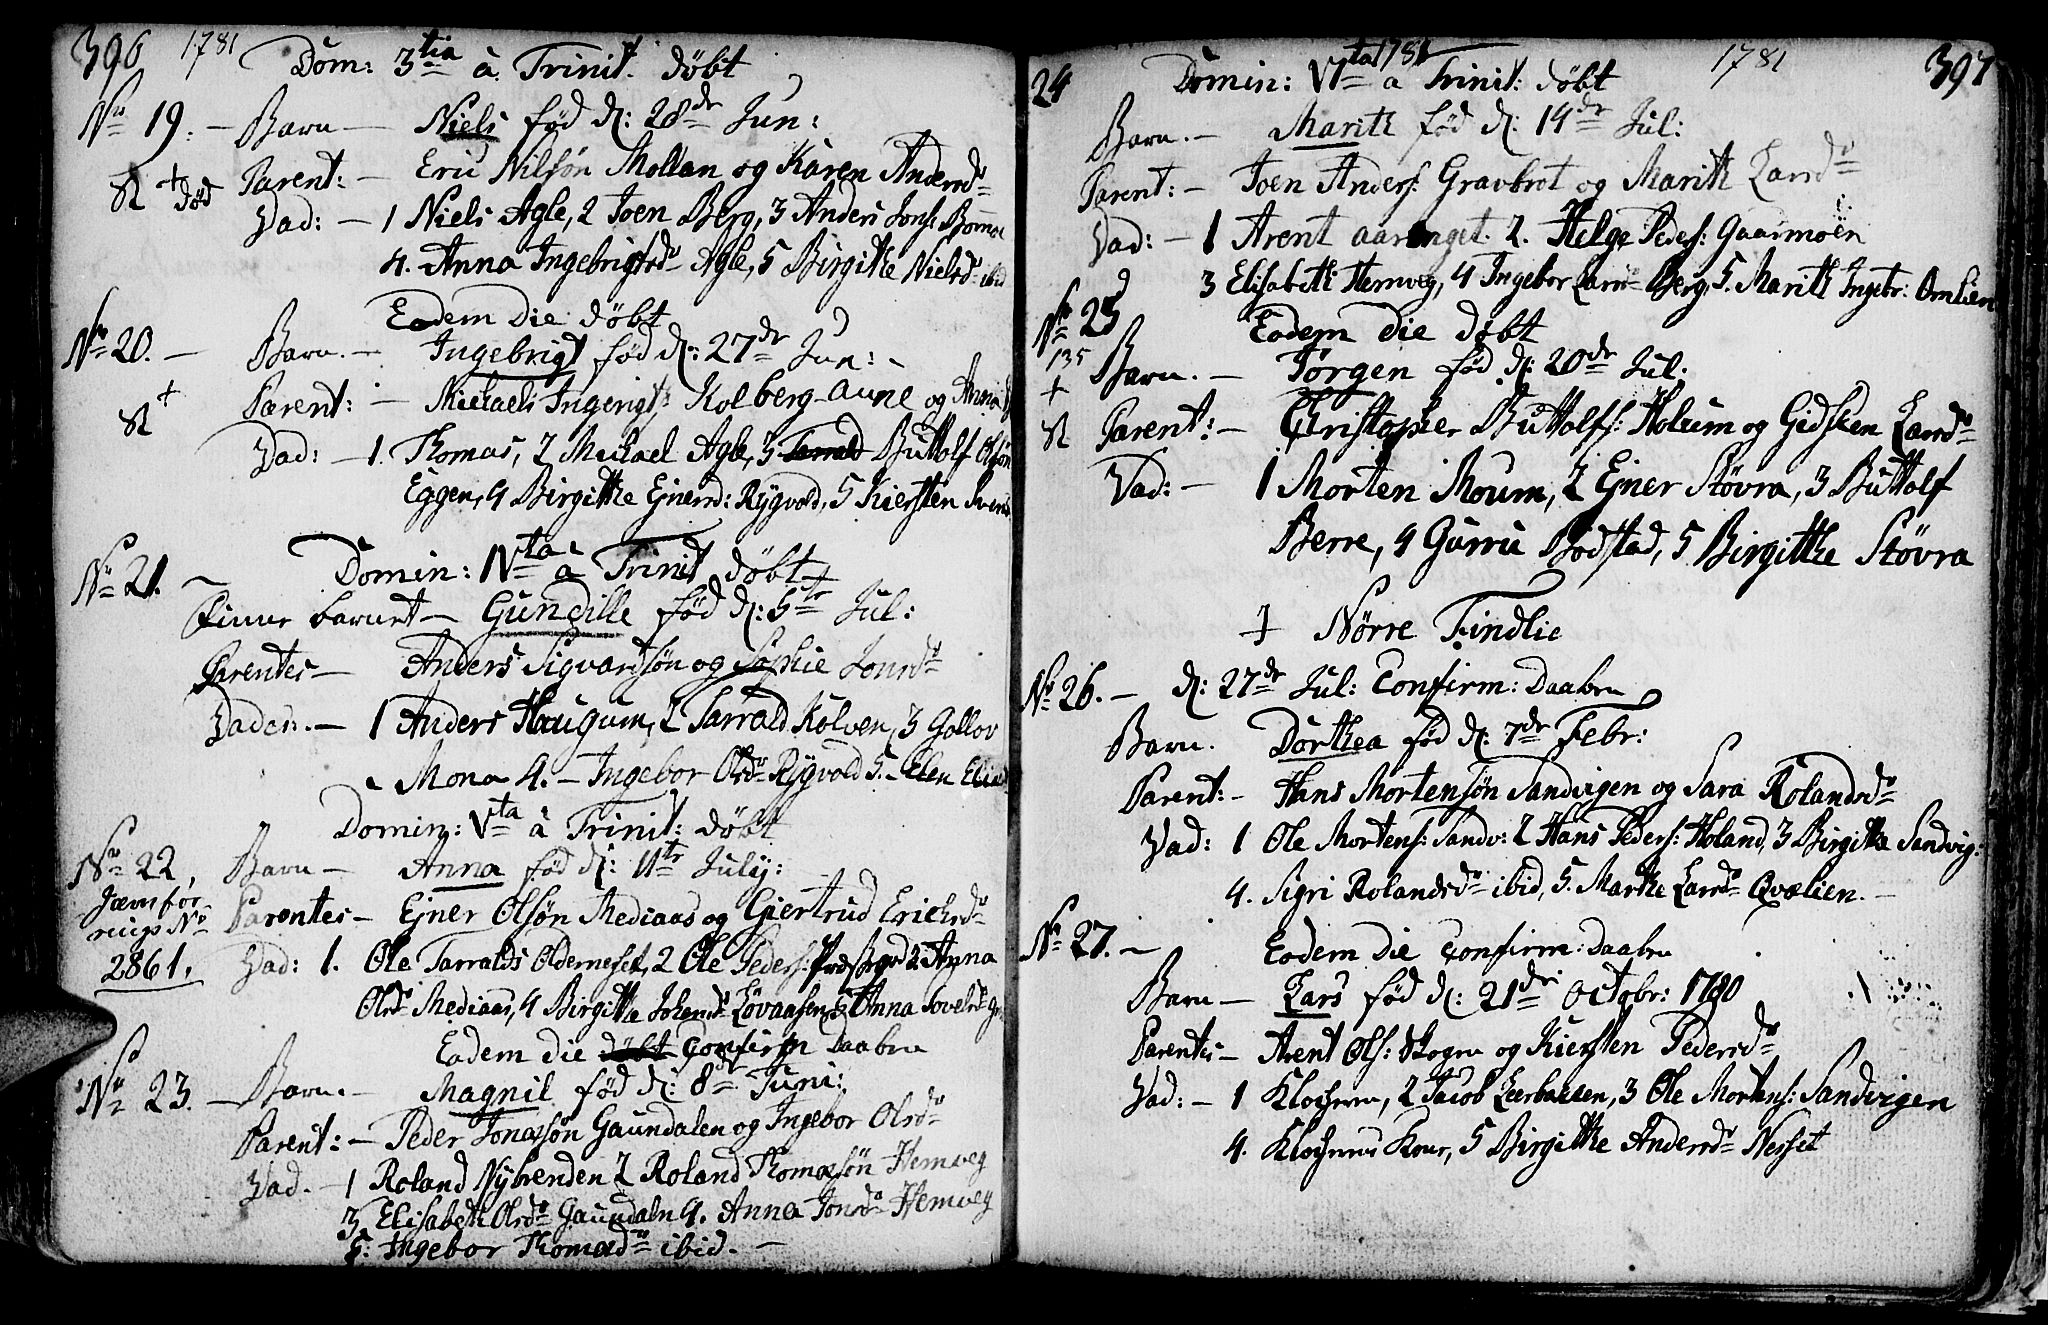 396 1781
Dom: 3tia à Trinit: døbt
No 19. – Barn – Niels fød d: 28de Jun:
St + død Parent: – Eric Nilsøn Mollan og Karen Andersd:
Vad: – 1 Niels Agle, 2 Joen Berg, 3 Anders Jons:
4. Anna Ingebrigtsd: Agle, 5 Birgithe Nielsd: ibid
Eodem die døbt
No 20. – Barn. – Ingebrigt fød d: 27de Jun: –
St + Parent: – Michaels Ingerigts: Kolberg-aune og Anna
Vad: – 1. Thomas, 2 Michael Agle, 3 Buttolf Olsøn
Eggen, 4 Birgithe Ejnersd: Rygvold, 5 Kiersten
No 21. – Domin: IVta à Trinit døbt
Finne barnet – Gundille fød d: 5te Jul:
Parentes – Anders Sigvardsøn og Sophie Jonsd:
Vaden. – 1 Anders Haugum, 2 Tarrald Kolven, 3 Gollov
Mona 4. – Ingebor Olsd: Rygvold 5.
Domin: Vta à Trinit: døbt
No 22, Barn – Anna fød d: 11te July:
Jævnfør-
rings No Parentes – Ejner Olsøn Mediaas og Giertrud Erichsd:
2861. Vad: 1. Ole Tarralds Olderneset, 2 Ole Peders: 3 Anna
Olsd: Mediaas, 4 Birgithe Johansd: 5 Anna
Eodem die døbt Confirm Daaben
No 23. – Barn. – Magnil fød d: 8de Juni:
Parent: – Peder Jonasøn Gaundalen og Ingebor Olsd:
Vad. – 1 Roland Nybrenden 2 Roland Thomasøn Hemveg
3 Elisabeth Olsd: Gaundaln 4. Anna Jonsd: Hemveg
5. Ingebor Thomasd: ibid. –
1781 1781 397
24 Domin: VIta à Trinit: døbt
Barn. – Marith fød d: 14de Jul:
Parent: – Joen Anders: Gravbrot og Marith Larsd:
Vad: – 1 Arent aaringet. 2. Helge Peders: Gaarmoen
3 Elisabeth Hemveg, 4 Ingebor Larsd: Berg, 5. Marith Ingebr: Omlien
No 25 Eodem die døbt
135 Barn. – Jørgen fød d: 20de Jul.
+
St Parent: – Christopher Buttolfs: Holum og Gidsken Larsd:
Vad: – 1 Morten Moum, 2 Ejner Støvra, 3 Buttolf
Berre, 4 Gurru Bodstad, 5 Birgithe Støvra
+ Nørre Findlie
No 26. – d: 27de Jul: Confirm: Daaben
Barn. Dorthea fød d: 7de Febr:
Parent: – Hans Mortensøn Sandvigen og Sara Rolandsd:
Vad: 1 Ole Mortens: Sandv: 2 Hans Peders: Holand, 3 Birgithe Sandvig:
4. Sigri Rolandsd: ibid, 5. Marthe Larsd: Qvælien. –
No 27. – Eodem die Confirm: Daaben
Barn – Lars fød d: 21de Octobr: 1780
Parentes – Arent Ols: og Kiersten Pedersd:
Vad: – 1 Klochren, 2 Jacob Leerbakken, 3 Ole Mortens: Sandvigen
4. Klochrens Kone, 5 Birgithe Andersd: Nesset